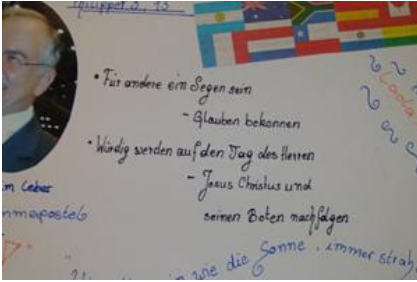 • Für andere ein Segen sein
- Glauben bekennen
• Würdig werden auf den Tag des Herren
- Jesus Christus und
seinen Boten nachfolgen
wie die Sonne, immer strah